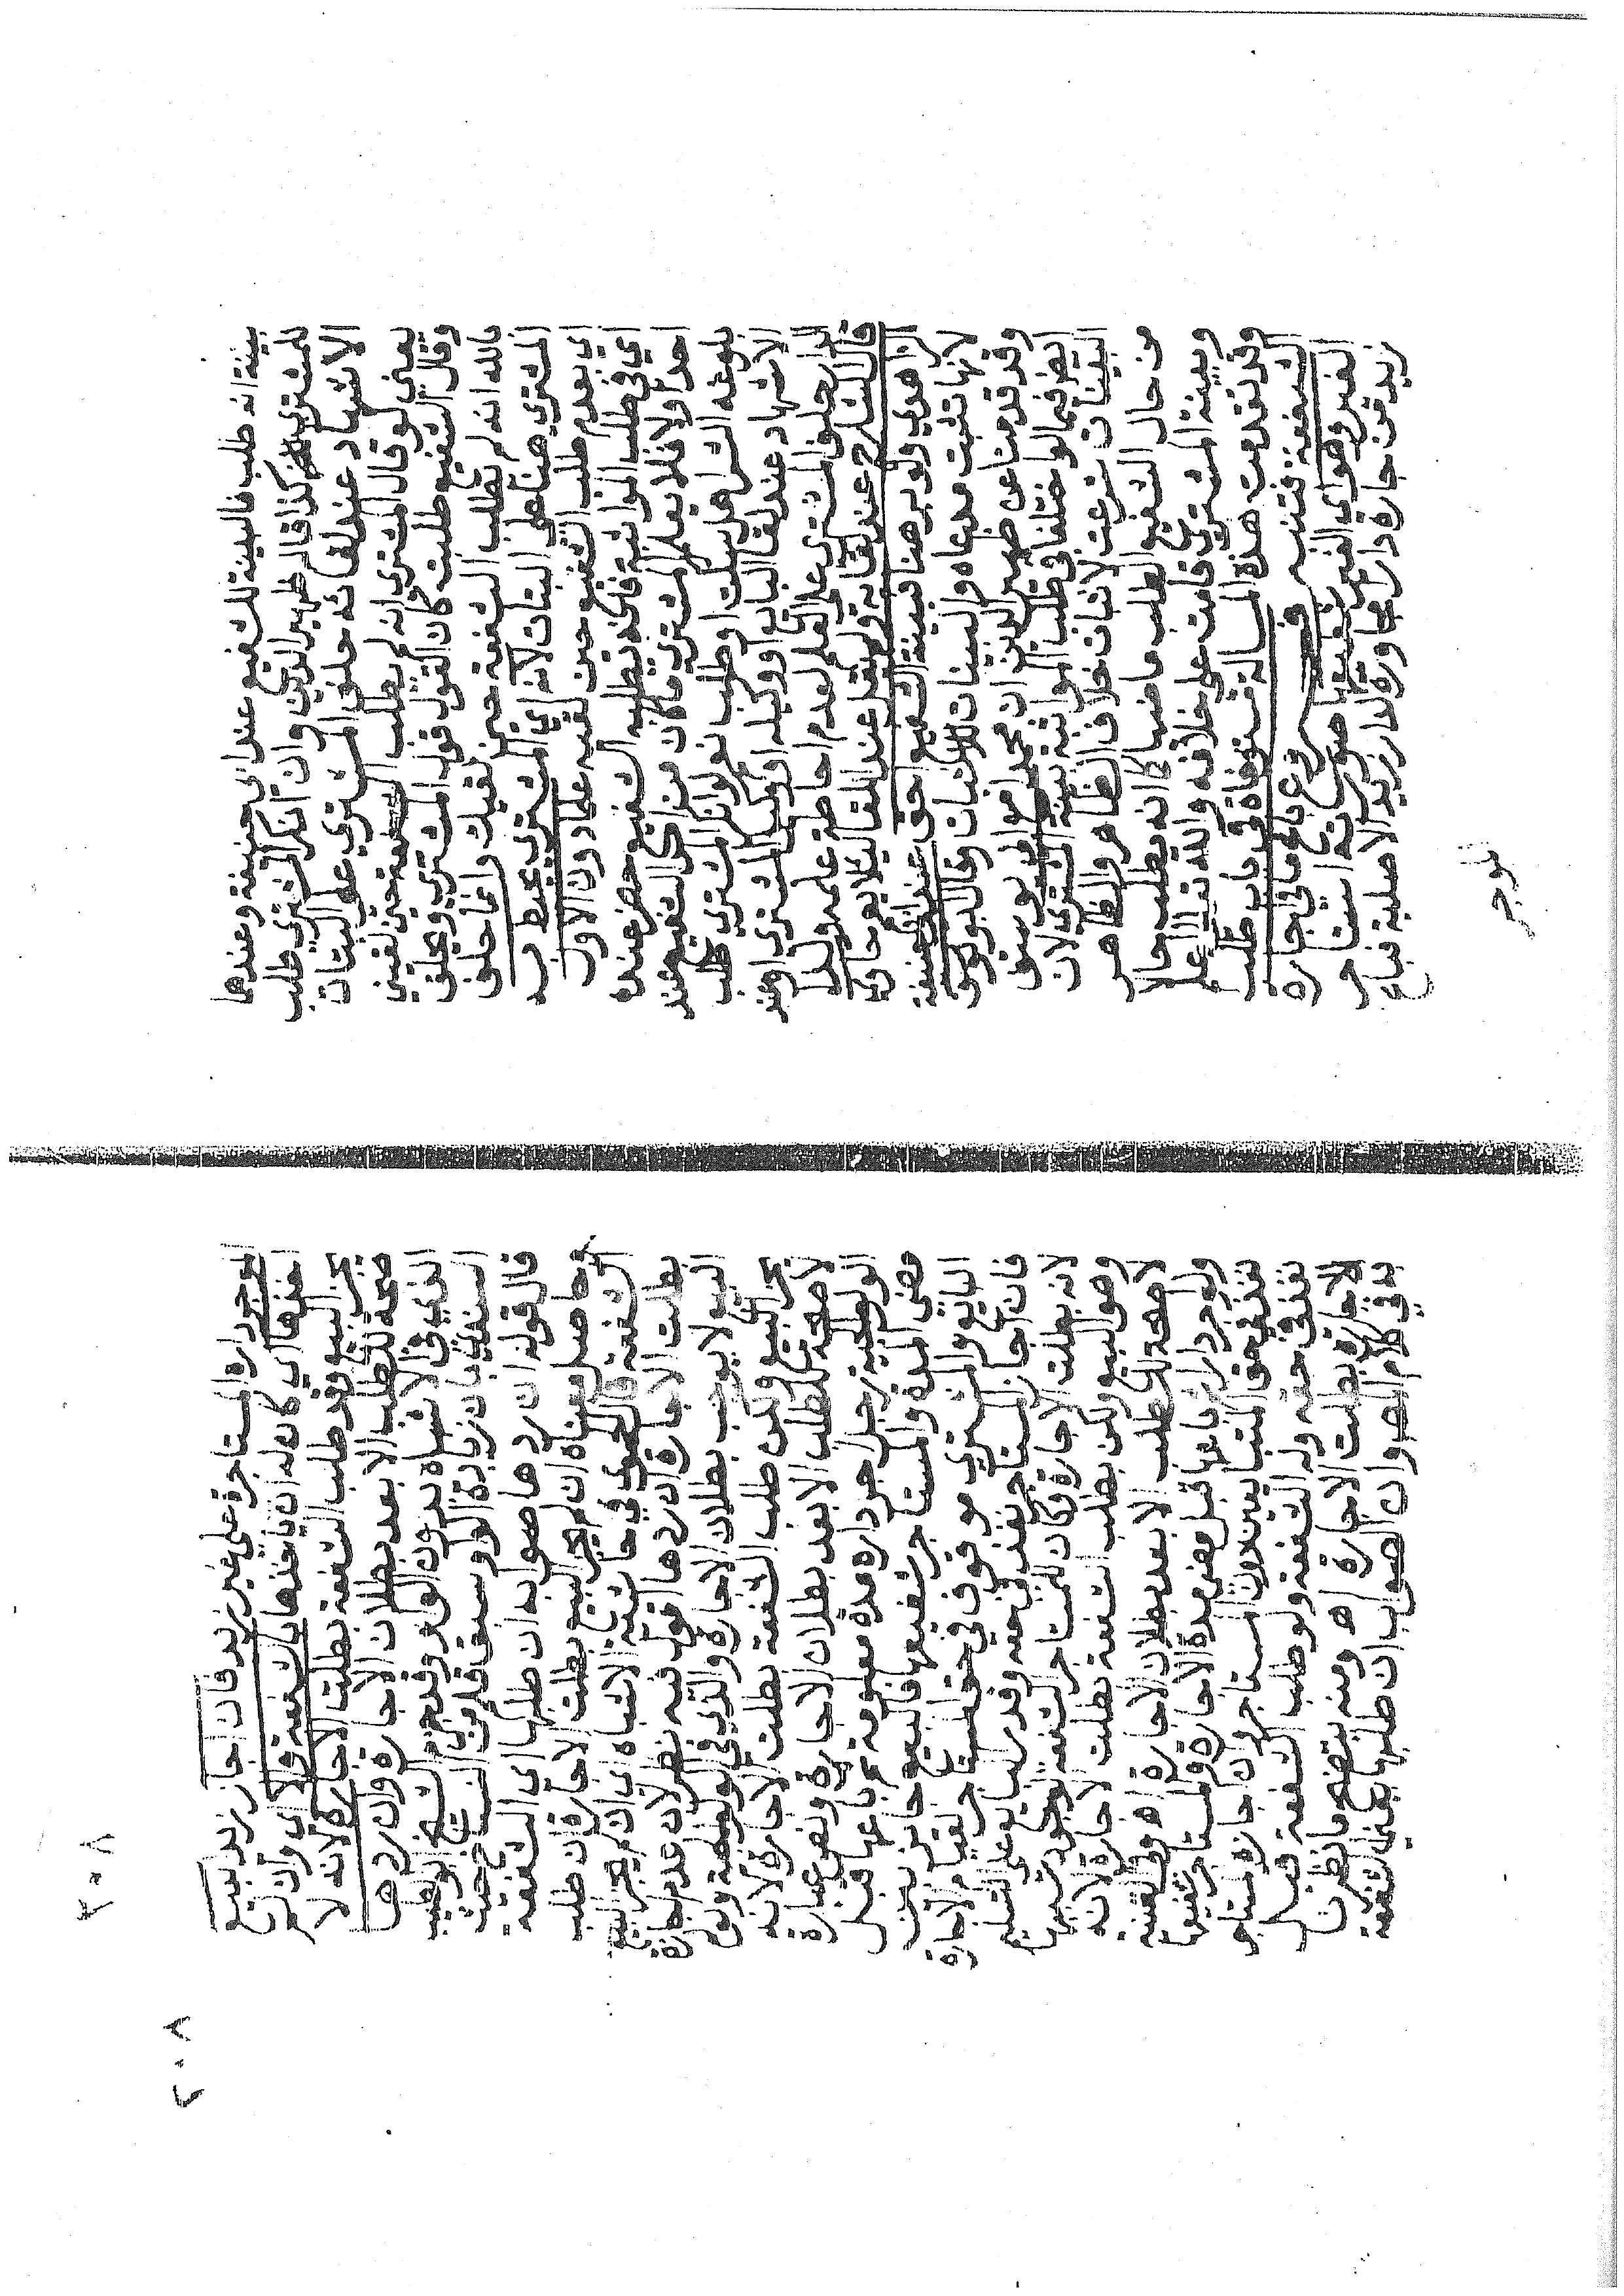 بينة انه طلب فالبينة للشفيع عند ابي حنيفة وعندهما
للمشتري كذا قاله ظهير الدين وان انكر المشتري طلب
الاشهاد عند لقائه حلف المشتري على البتات
يعني لو قال المشتري انه لم يطلب الشفعة حين لقيني
وقال الشفيع طلبت كان القول قول المشتري ويحلف
بالله انه لم يطلب الشفعة حين لقيك وانما حلف
المشتري هنا على البتات لانه اي المشتري يحيط به
اي بعدم طلب الشفيع حين لقيه علما دون الاول
اي في طلب المواثبة فانه يطلبه الشفيع حضر عنده
احد اولا فلا يعلم المشتري ما كان من الشفيع عند
بلوغه الشرا هل سكت او طلب نعم لو انكر المشتري طلب
الاشهاد عند لقا البايع او وكيله او وكيل المشتري او عند
الدار حلف المشتري على العلم لعدم احاطة علمه ولذا
قال الشارح عند لقايه ولم يقل عند اللقا ليلا يعم حاوى
الزاهدي ولو برهنا فبينة الشفيع احق عند ابي حنيفة
لانها تثبت مدعاه والبينات للاثبات وقال ابو يوسف
وقد قدمنا عن ظهير الدين ان محمدا مع ابي يوسف
ايضا فيما لو اختلفا في طلب المواثبة بينة المشتري لان
البينات شرعت لاثبات خلاف الظاهر والظاهر
من حال الشفيع الطلب ماضيا كما انه يطلب حالا
وبينة المشتري قامت على خلافه والله تعالى اعلم
وقد تقدمت هذه المسالة مستوفاة في باب طلب
الشفعة فتنبه فرع باع ما في اجارة
الغير وهو اي الغير شفيعها صورته استاجر
زيد من جاره دارا مجاورة لدار زيد الاصلية فباع
الموجر
٢٠٨
٢٠٨
الموجر داره المستاجرة على غير زيد فان اجاز زيد البيع
اخذها اي كان له ان ياخذها بالشفعة والا اي وان لم
يجز البيع وقد طلب الشفعة بطلت الاجارة لانه لا
صحة للطلب الا بعد بطلان الاجارة وان ردها
الذي في الاشباه بدون الواو وقد جزم الشيخ ابو الطيب
السندي بان زيادة الواو سبق قلم من النساخ حيث
قال قوله ان ردها صوابه ان طلبها اي الشفعة
وحاصل معناه ان لم يجز البيع بطلت الاجارة ان طلب
الشفعة قال الحموي في حاشية الاشباه اي ان لم يجز البيع
بطلت الاجارة ان ردها اقول فيه نظر لان عدم اجازة
البيع لا يوجب بطلان الاجارة والذي في الولوالجية ولو لم
يجز البيع ولكن طلب الشفعة بطلت الاجارة لانه
لا صحة للطلب الا بعد بطلان الاجارة ونص عبارة
الولوالجية رجل اجر داره مدة معلومة ثم باعها قبل
مضي المدة والمستاجر شفيعها فالبيع جائز بين
البايع والمشتري موقوف في حق المستاجر لقيام الاجارة
فان اجاز المستاجر نفذ في حقه وقدر البايع على التسليم
لانه بطلت الاجارة وكان للمستاجر الشفعة لوجود سببها
وهو البيع ولكن بطلب الشفعة بطلت الاجارة لانه
لا صحة للطلب الا بعد بطلان الاجارة اهـ وفي القنية
ولو اجر دارا ثم باعها قبل مضي مدة الاجارة والمستاجر شفيعها
نفذ في حق المتبايعين دون المستاجر وان اجازه المستاجر
نفذ في حقه وله الشفعة ولو طلب الشفعة قبل
الاجازة بطلت الاجارة اهـ ومنه يتضح ما نظرنا
به في كلام المص وان الصواب ان طلبها يعني الشفعة